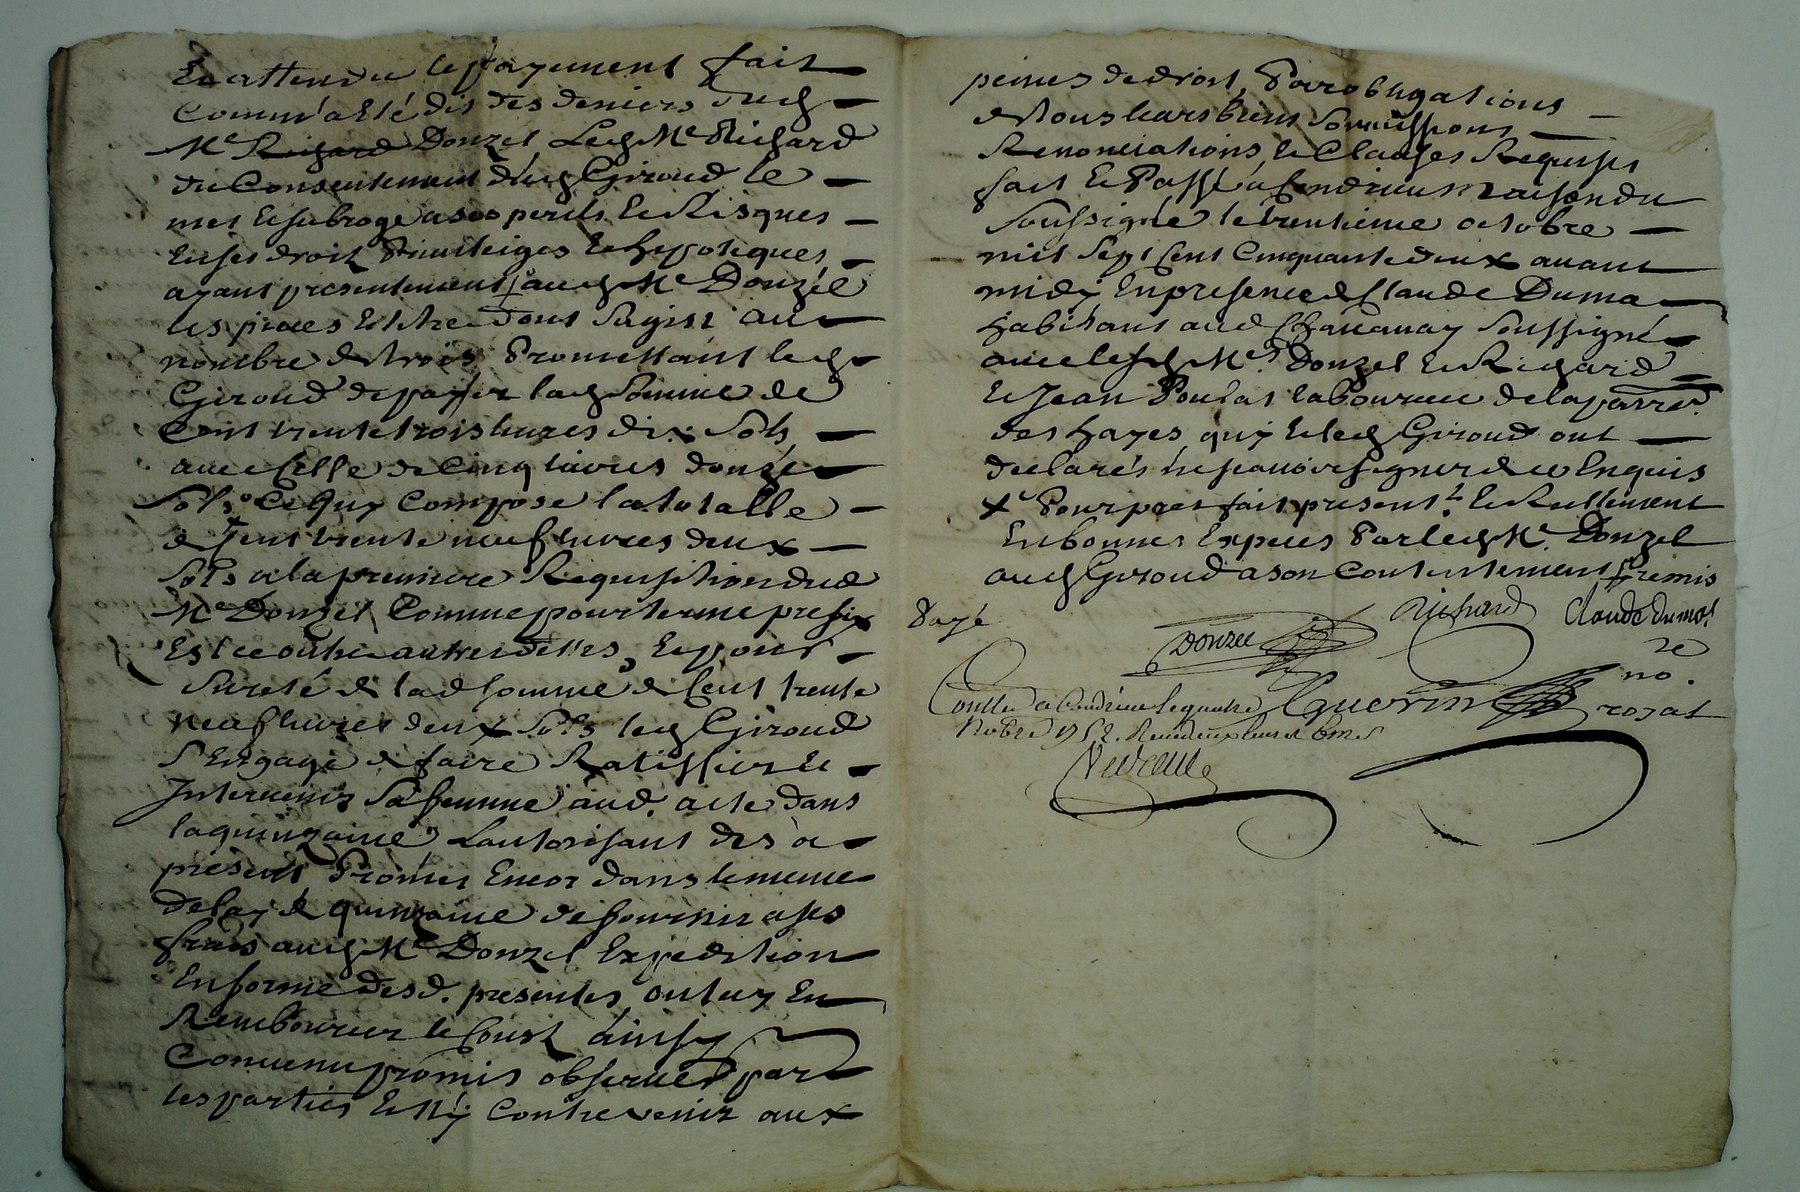 Et attendu le payement fait
comm'a eté dit des deniers dud
Me Richard Donzel Led Me Richard
du Consentement dud Giroud le
met et subroge a ses perils et Risques
en ses droit Privileiges et hypoteques
ayant presentement aud Me Donzel
les pieces et titre dont s'agist au
nombre de trois Promettant led
Giroud de payer lad somme de
Cent trente trois livres dix sols
avec Celle de Cinq livres douze
sols Ce quy Compose la totalle
de Cent trente neuf livres deux
sols a la premiere Requisition dud
Me Donzel Comme pour terme prefix
Et ce outre autres dettes, Et pour
sureté de lad somme de Cent trente
neuf livres deux sols led Giroud
s'Engage de faire Ratiffier et
Intervenir sa femme aud. acte dans
la quinzaine L'autorisant des a
present Promet Encor dans le meme
delay de quinzaine de fournir a ses
frais aud Me Donzel Expedition
En forme desd. presentes ou luy En
Rembourcer le Coust ainsy
Convenu promis observer par
les parties Et n'y Contrevenir aux
peines de droit, Par obligations
de tous leurs biens soumissions
Renonciations, et Clauses Requises
fait et Passé a Condrieu maison du
soussigné le trentieme octobre
mil sept Cent Cinquante deux avant
midy En presence de Claude Duma
habitant aud Chavanay soussigné
avec lesd Mes Donzel et Richard
et Jean laboureur de la
des hayes quy et led Giroud ont
declarés ne scavoir signer de ce Enquis
x Pour pret fait present.t et Reellement
En bonnes Especes Par led Me. Donzel
aud Giroud a son Contentement Premis
Payé
Donzel Richard Claude dumas
Guerin no. royal
Conllé a Condrieu le quatre
Nobre 1752. Receu